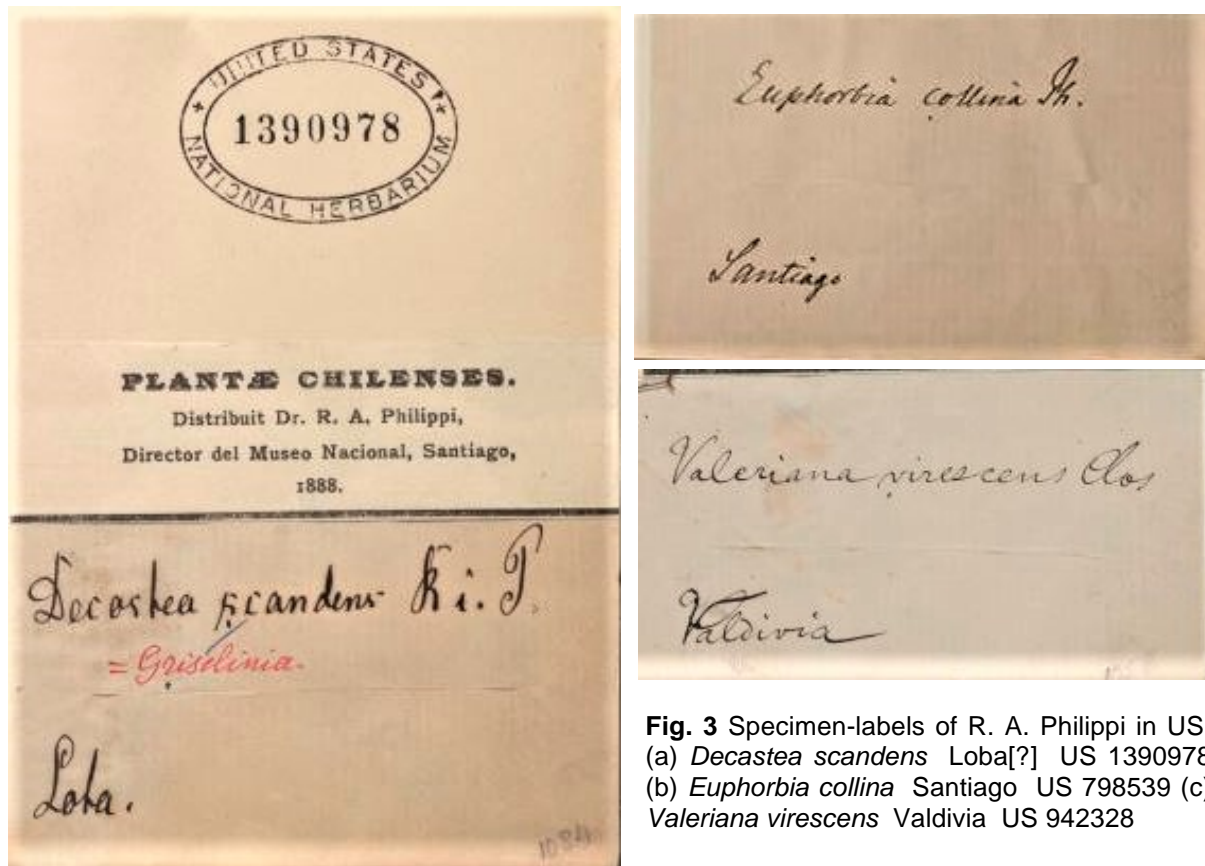 UNITED STATES
1390978
NATIONAL HERBARIUM
PLANTÆ CHILENSES.
Distribuit Dr. R. A. Philippi,
Director del Museo Nacional, Santiago,
1888.
Decostea scandens R i. P.
= Griselinia.
Lota.
1084
Euphorbia collina Ph.
Santiago
Valeriana virescens Clos
Valdivia
Fig. 3 Specimen-labels of R. A. Philippi in US
(a) Decastea scandens Loba[?] US 1390978
(b) Euphorbia collina Santiago US 798539 (c)
Valeriana virescens Valdivia US 942328